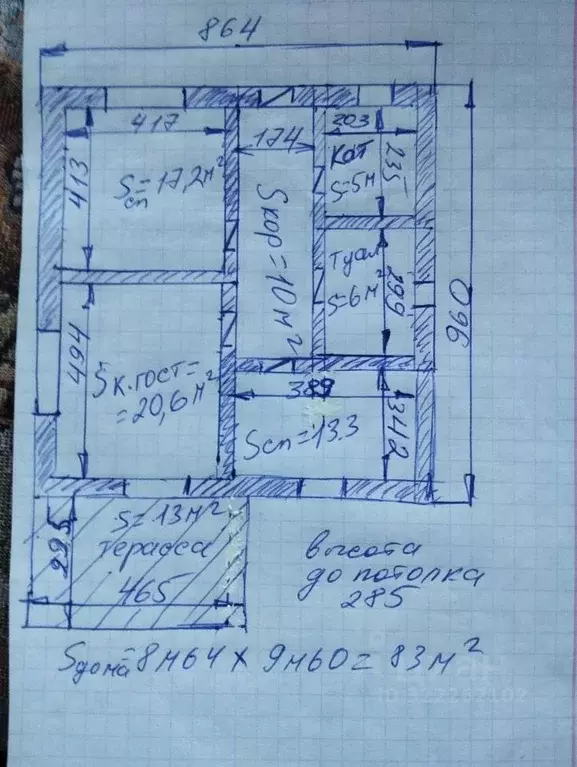 864
417
413
S=17,2м²
сп
174
203
кот
S=5м
235
Sкор=10м²
туал
S=6м²
299
960
494
Sк.гост=
=20,6м²
389
Sсп=13.3
342
S=13м²
тераса
295
465
высота
до потолка
285
Sдома=8м64х9м60=83м²